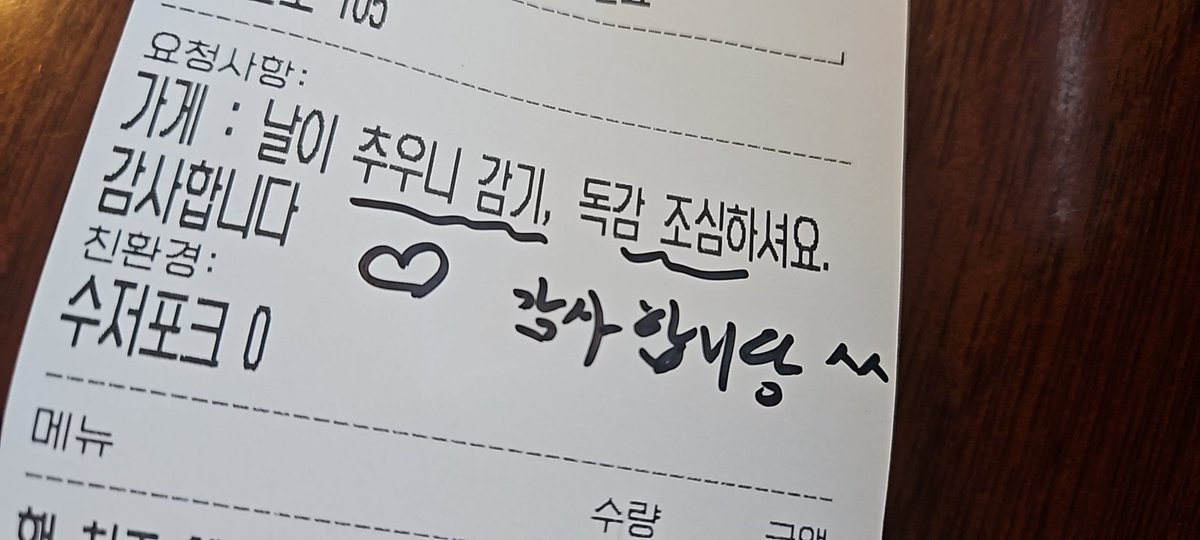 105
요청사항:
가게 : 날이 추우니 감기, 독감 조심하셔요.
감사합니다
친환경:
수저포크 0
감사합니당 ^^
메뉴
수량